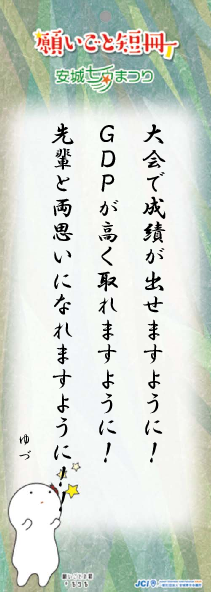 願いごと短冊
安城七夕まつり
大会で成績が出せますように！
ＧＤＰが高く取れますように！
先輩と両思いになれますように！！
ゆづ
JCI